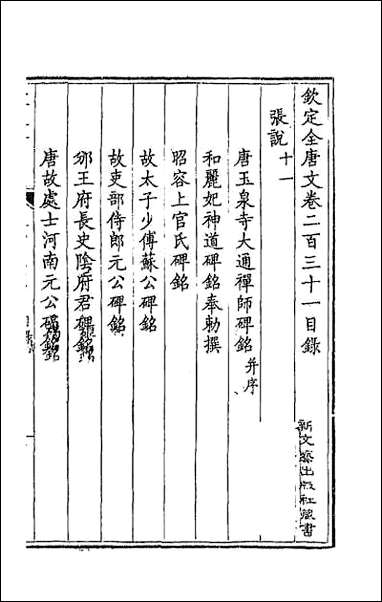 欽定全唐文卷二百三十一目錄
張說十一
唐玉泉寺大通禪師碑銘并序
和麗妃神道碑銘奉勅撰
昭容上官氏碑銘
故太子少傅蘇公碑銘
故吏部侍郎元公碑銘
邠王府長史陰府君碑銘
唐故處士河南元公碑銘
新文豐出版社藏書